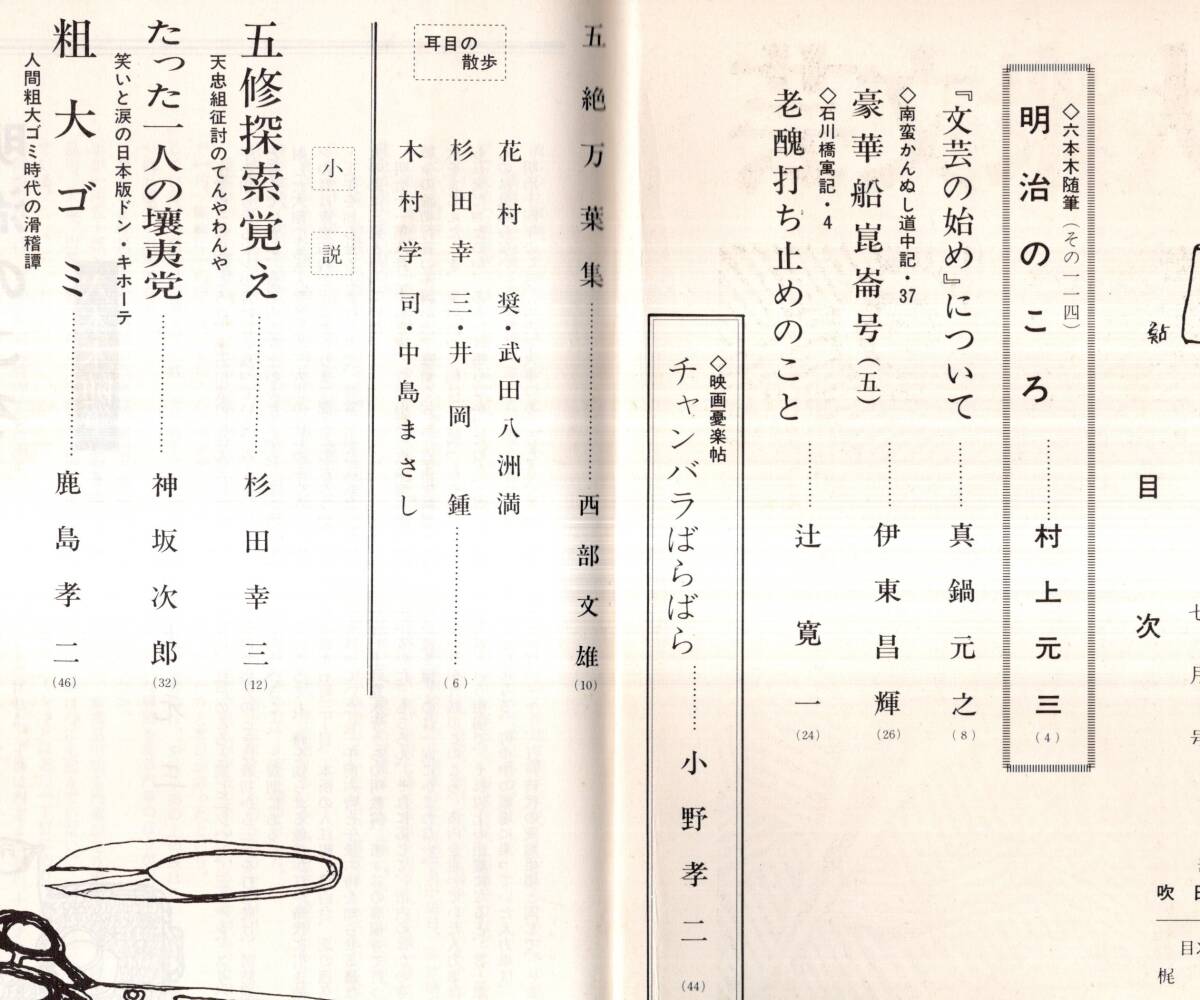 七月号
目次
◇六本木随筆（その一一四）
明治のころ…………村上元三（4）
『文芸の始め』について…………真鍋元之（8）
◇南蛮かんぬし道中記・37
豪華船崑崙号（五）…………伊東昌輝（26）
◇石川橋寓記・4
老醜打ち止めのこと…………辻寛一（24）
◇映画憂楽帖
チャンバラばらばら…………小野孝二（44）
五絶万葉集…………西部文雄（10）
耳目の
散歩
花村奨・武田八洲満
杉田幸三・井岡鍾…………（6）
木村学司・中島まさし
小説
五修探索覚え…………杉田幸三（12）
天忠組征討のてんやわんや
たった一人の壤夷党…………神坂次郎（32）
笑いと涙の日本版ドン・キホーテ
粗大ゴミ…………鹿島孝二（46）
人間粗大ゴミ時代の滑稽譚
吹
目
梶